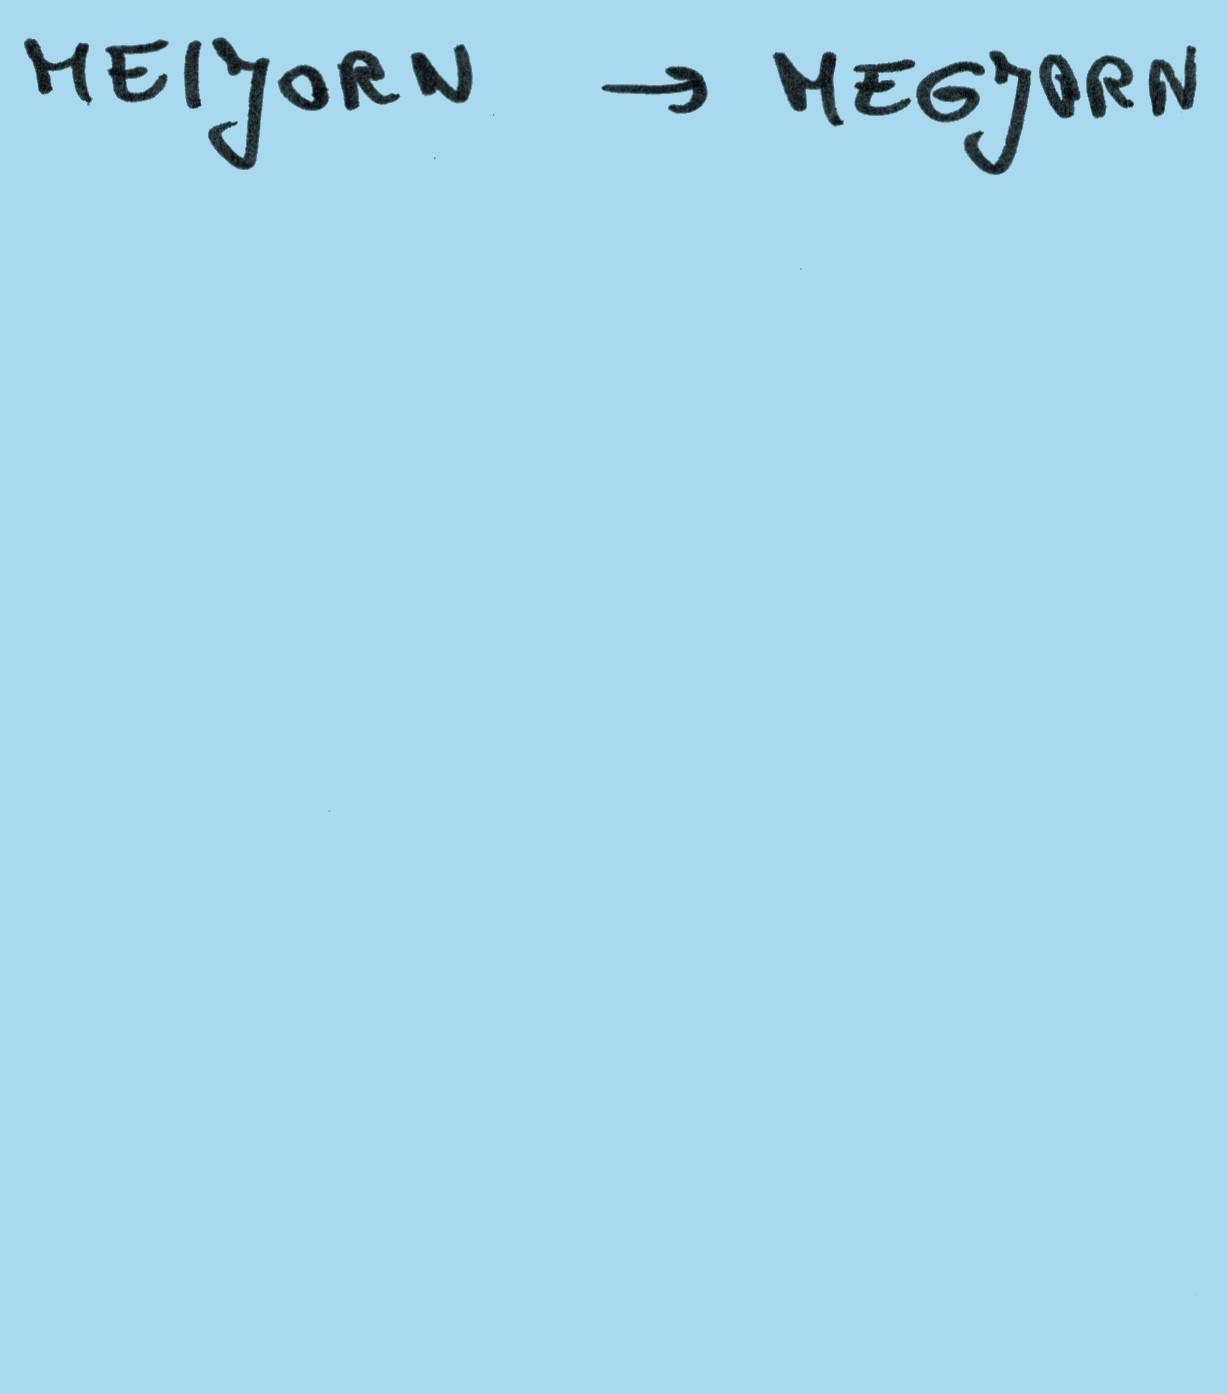 MEIJORN → MEGJORN